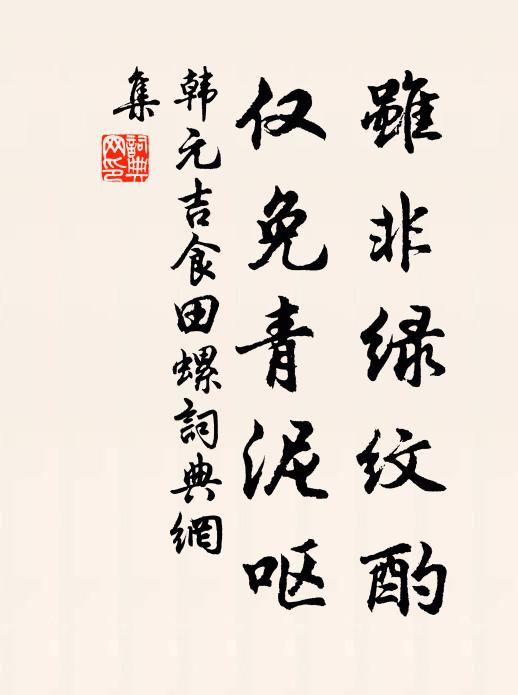 雖非绿紋酌
仅免青泥呕
韩元吉食田螺詞典網
集
詞典網印